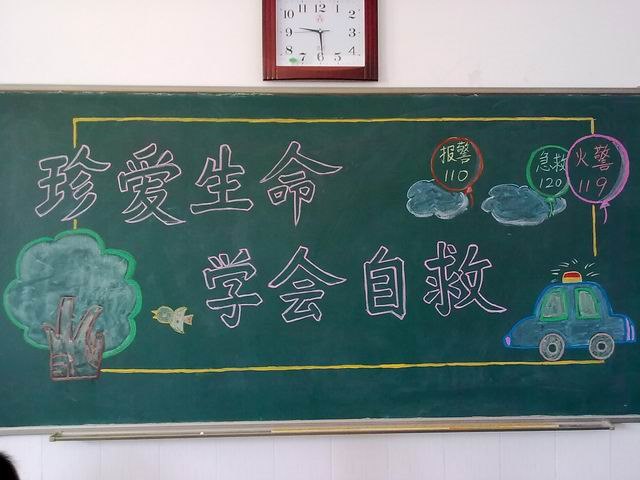 10 11 12 1 2 3 4 5 6 7 8 9
珍爱生命
报警
110
急救
120
火警
119
学会自救